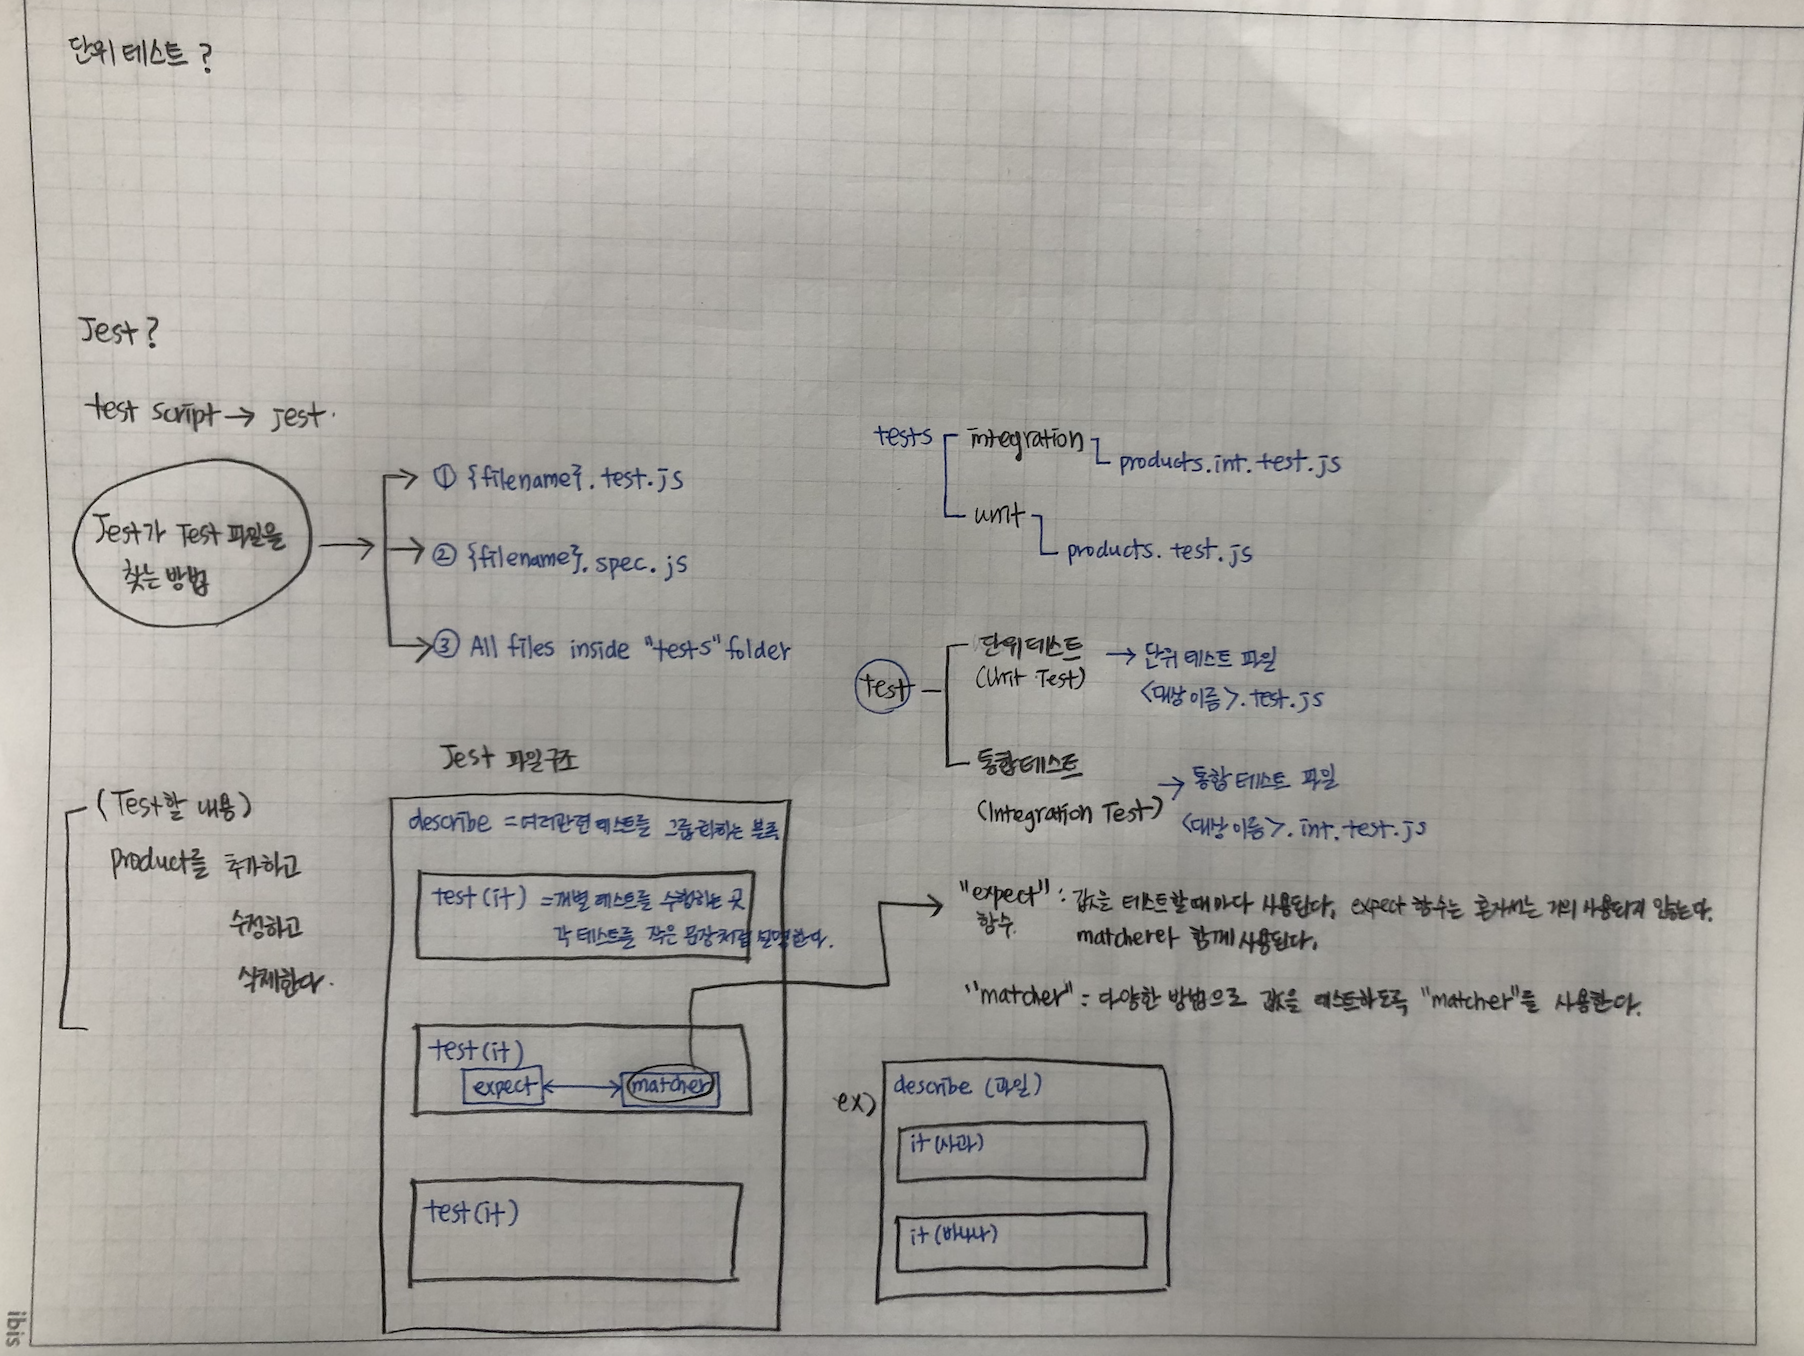 단위 테스트?
Jest?
test script → jest.
Jest가 Test 파일을
찾는 방법
① {filename}.test.js
② {filename}.spec.js
③ All files inside "tests" folder
tests
integration
products.int.test.js
unit
products.test.js
test
단위테스트
(Unit Test)
→ 단위 테스트 파일
<대상이름>.test.js
통합테스트
(Integration Test)
→ 통합 테스트 파일
<대상이름>.int.test.js
(Test할 내용)
product를 추가하고
수정하고
삭제한다.
Jest 파일구조
describe = 여러관련 테스트를 그룹화하는 블록
test(it) = 개별 테스트를 수행하는 곳
각 테스트를 작은 문장처럼 설명한다.
test(it)
expect ↔ matcher
test(it)
"expect" : 값을 테스트할때마다 사용된다, expect 함수는 혼자서는 거의 사용되지 않는다.
함수. matcher와 함께사용된다.
"matcher" = 다양한 방법으로 값을 테스트하도록 "matcher"를 사용한다.
ex)
describe (과일)
it (사과)
it (바나나)
ibis